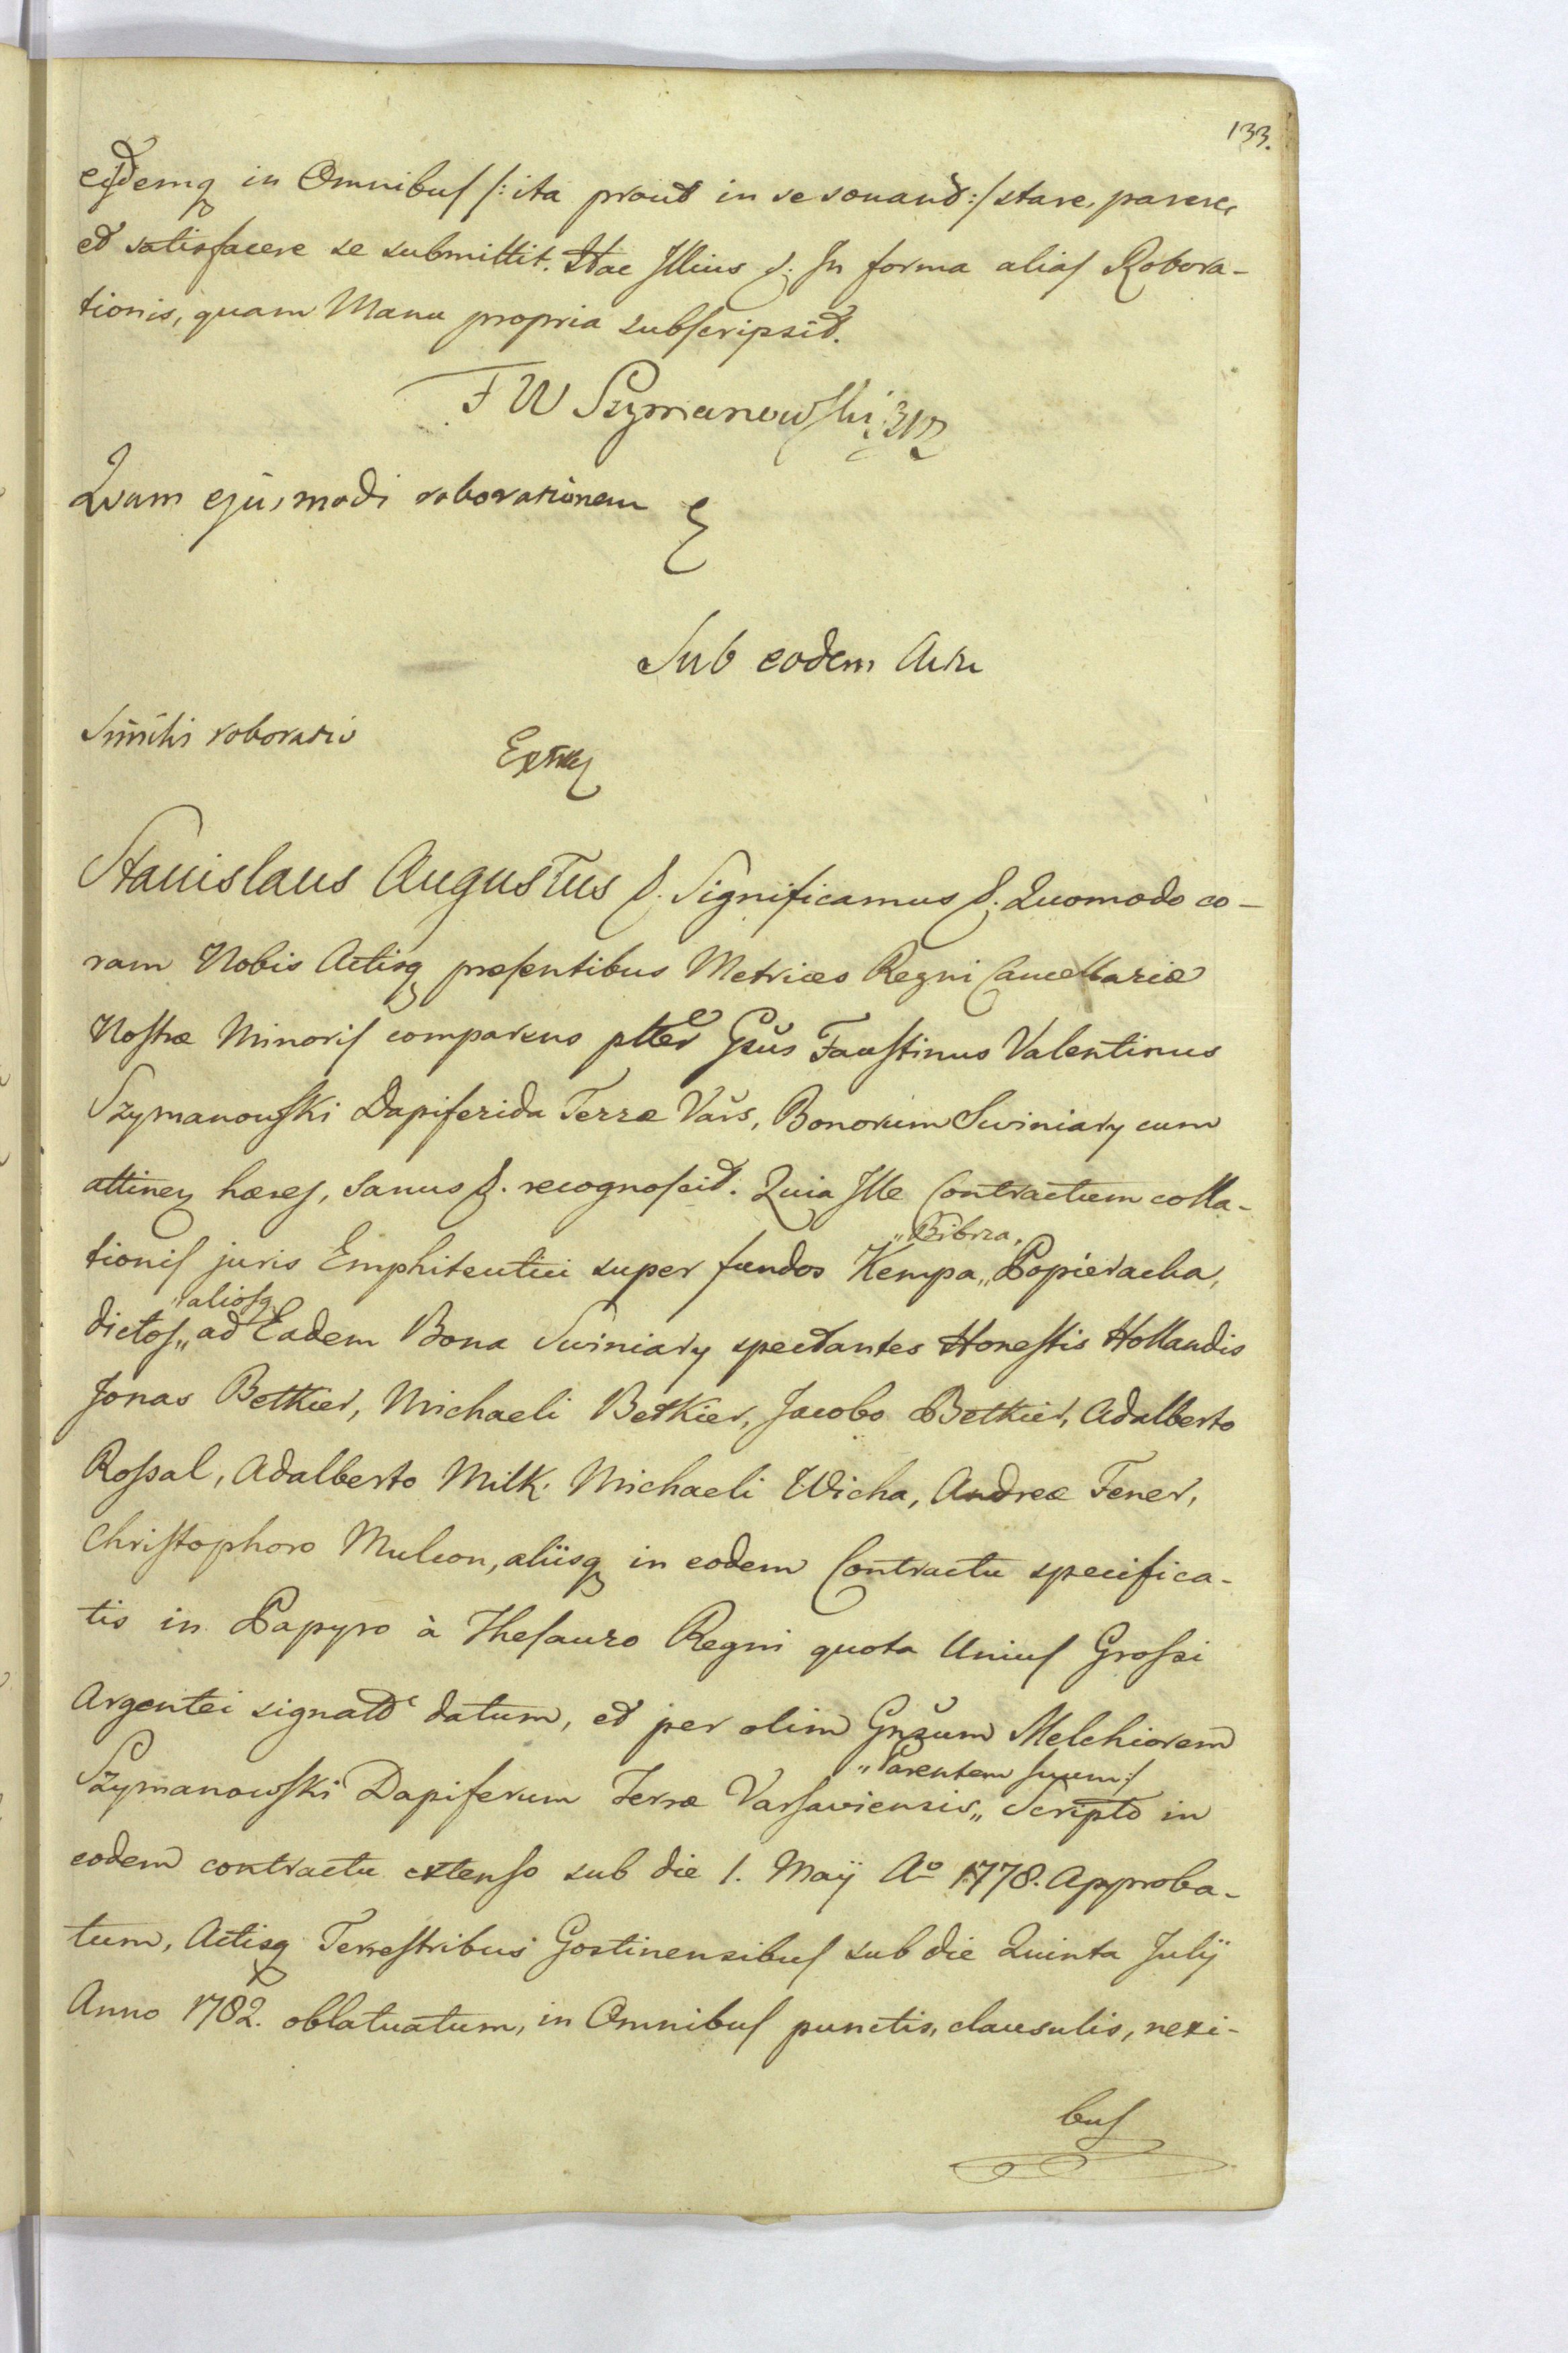 133.
eisdemq in Omnibus /: ita prout in se sonand :/ stare, parere,
et satisfacere se submittit. Hac Illius &. In forma alias Robora-
tionis, quam Manu propria subscripsit.
F W Szymanowski
Quam ejusmodi roborationem
Sub eodem Actu
Similis roboratio
Stanislaus Augustus &. Significamus &. Quomodo co-
ram Nobis Actisq præsentibus Metrices Regni Cancellariæ
Nostræ Minoris comparens Gsus Faustinus Valentinus
Szymanowski Dapiferida Terræ Vars, Bonorum Swiniary cum
attinen hæres, sanus &. recognoscit. Quia Ille Contractum colla-
tionis juris Emphiteutici super fundos Kempa „ Bibrza, Popieracka,
dictos „ aliosq ad Eadem Bona Swiniary spectantes Honestis Hollandis
Jonas Betkier, Michaeli Betkier, Jacobo Betkier, Adalberto
Rossal, Adalberto Milk. Michaeli Wicha, Andreæ Fener,
Christophoro Muleon, aliisq in eodem Contractu specifica-
tis in Papyro à Thesauro Regni quota Unius Grossi
Argentei signatd datum, et per olim Gnsum Melchiorem
Szymanowski Dapiferum Terræ Varsaviensis „ Parentem suum :/ Scripto in
eodem contractu extenso sub die 1. Maÿ Aº 1778. Approba-
tum, Actisq Terrestribus Gostinensibus sub die Quinta Julÿ
Anno 1782. oblatuatum, in Omnibus punctis, clausulis, nexi-
bus